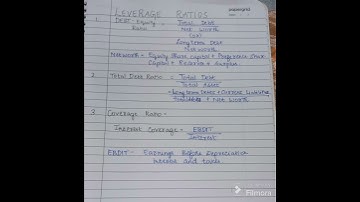 LEVERAGE RATIOS
1. Debt Equity Ratio = Total Debt
Net Worth
(or)
Long term Debt
Net Worth
Networth - Equity Share Capital + Preference Share
Capital + Reserves + Surplus
2. Total Debt Ratio = Total Debt
Total Asset
+ Net Worth
3. Coverage Ratio -
Interest Coverage = EBDIT
Interest
EBDIT - Earnings Before Depreciation
Interest and taxes
Filmora